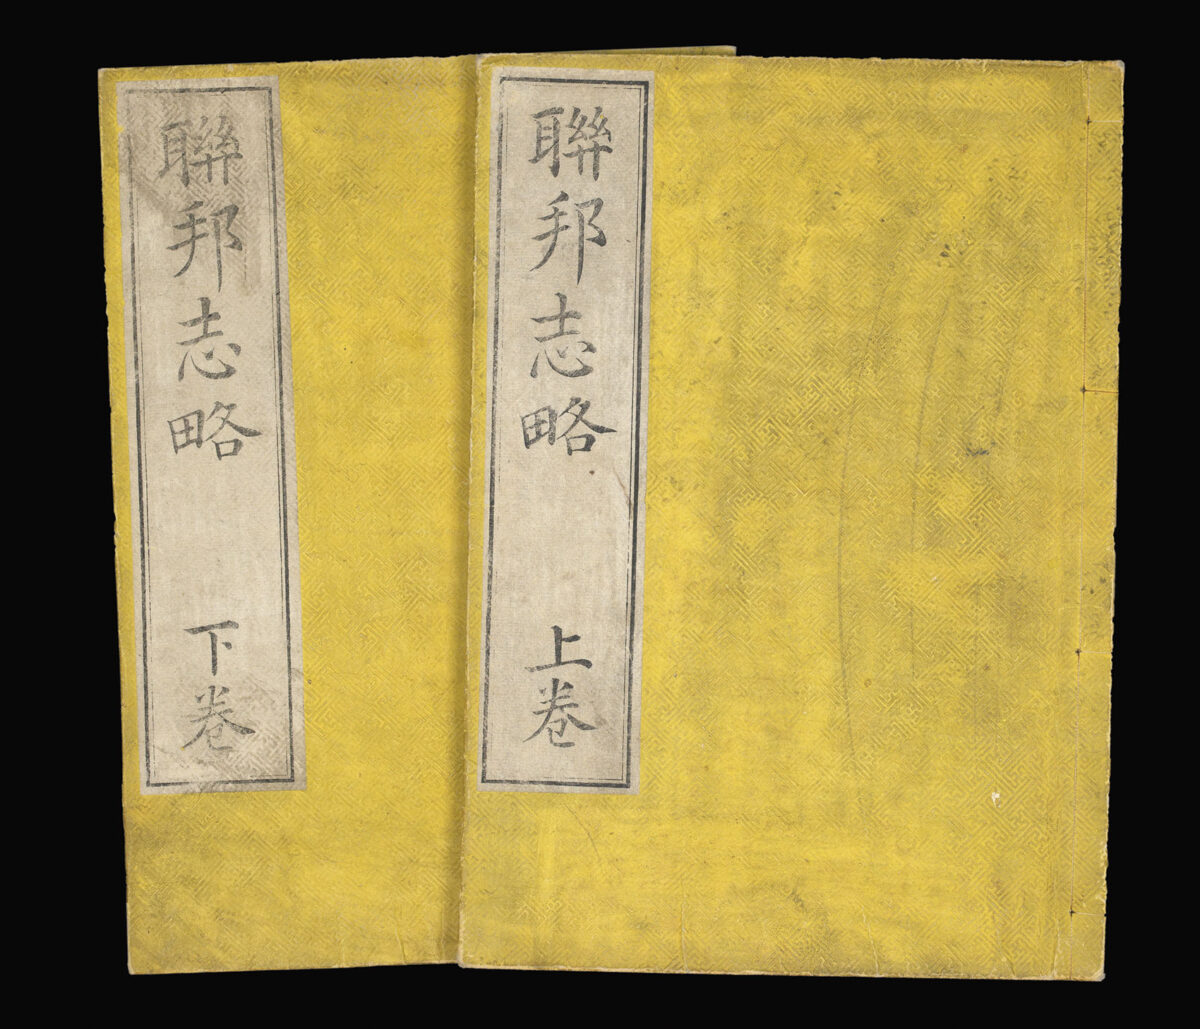 聯邦志略 上卷
聯邦志略 下卷